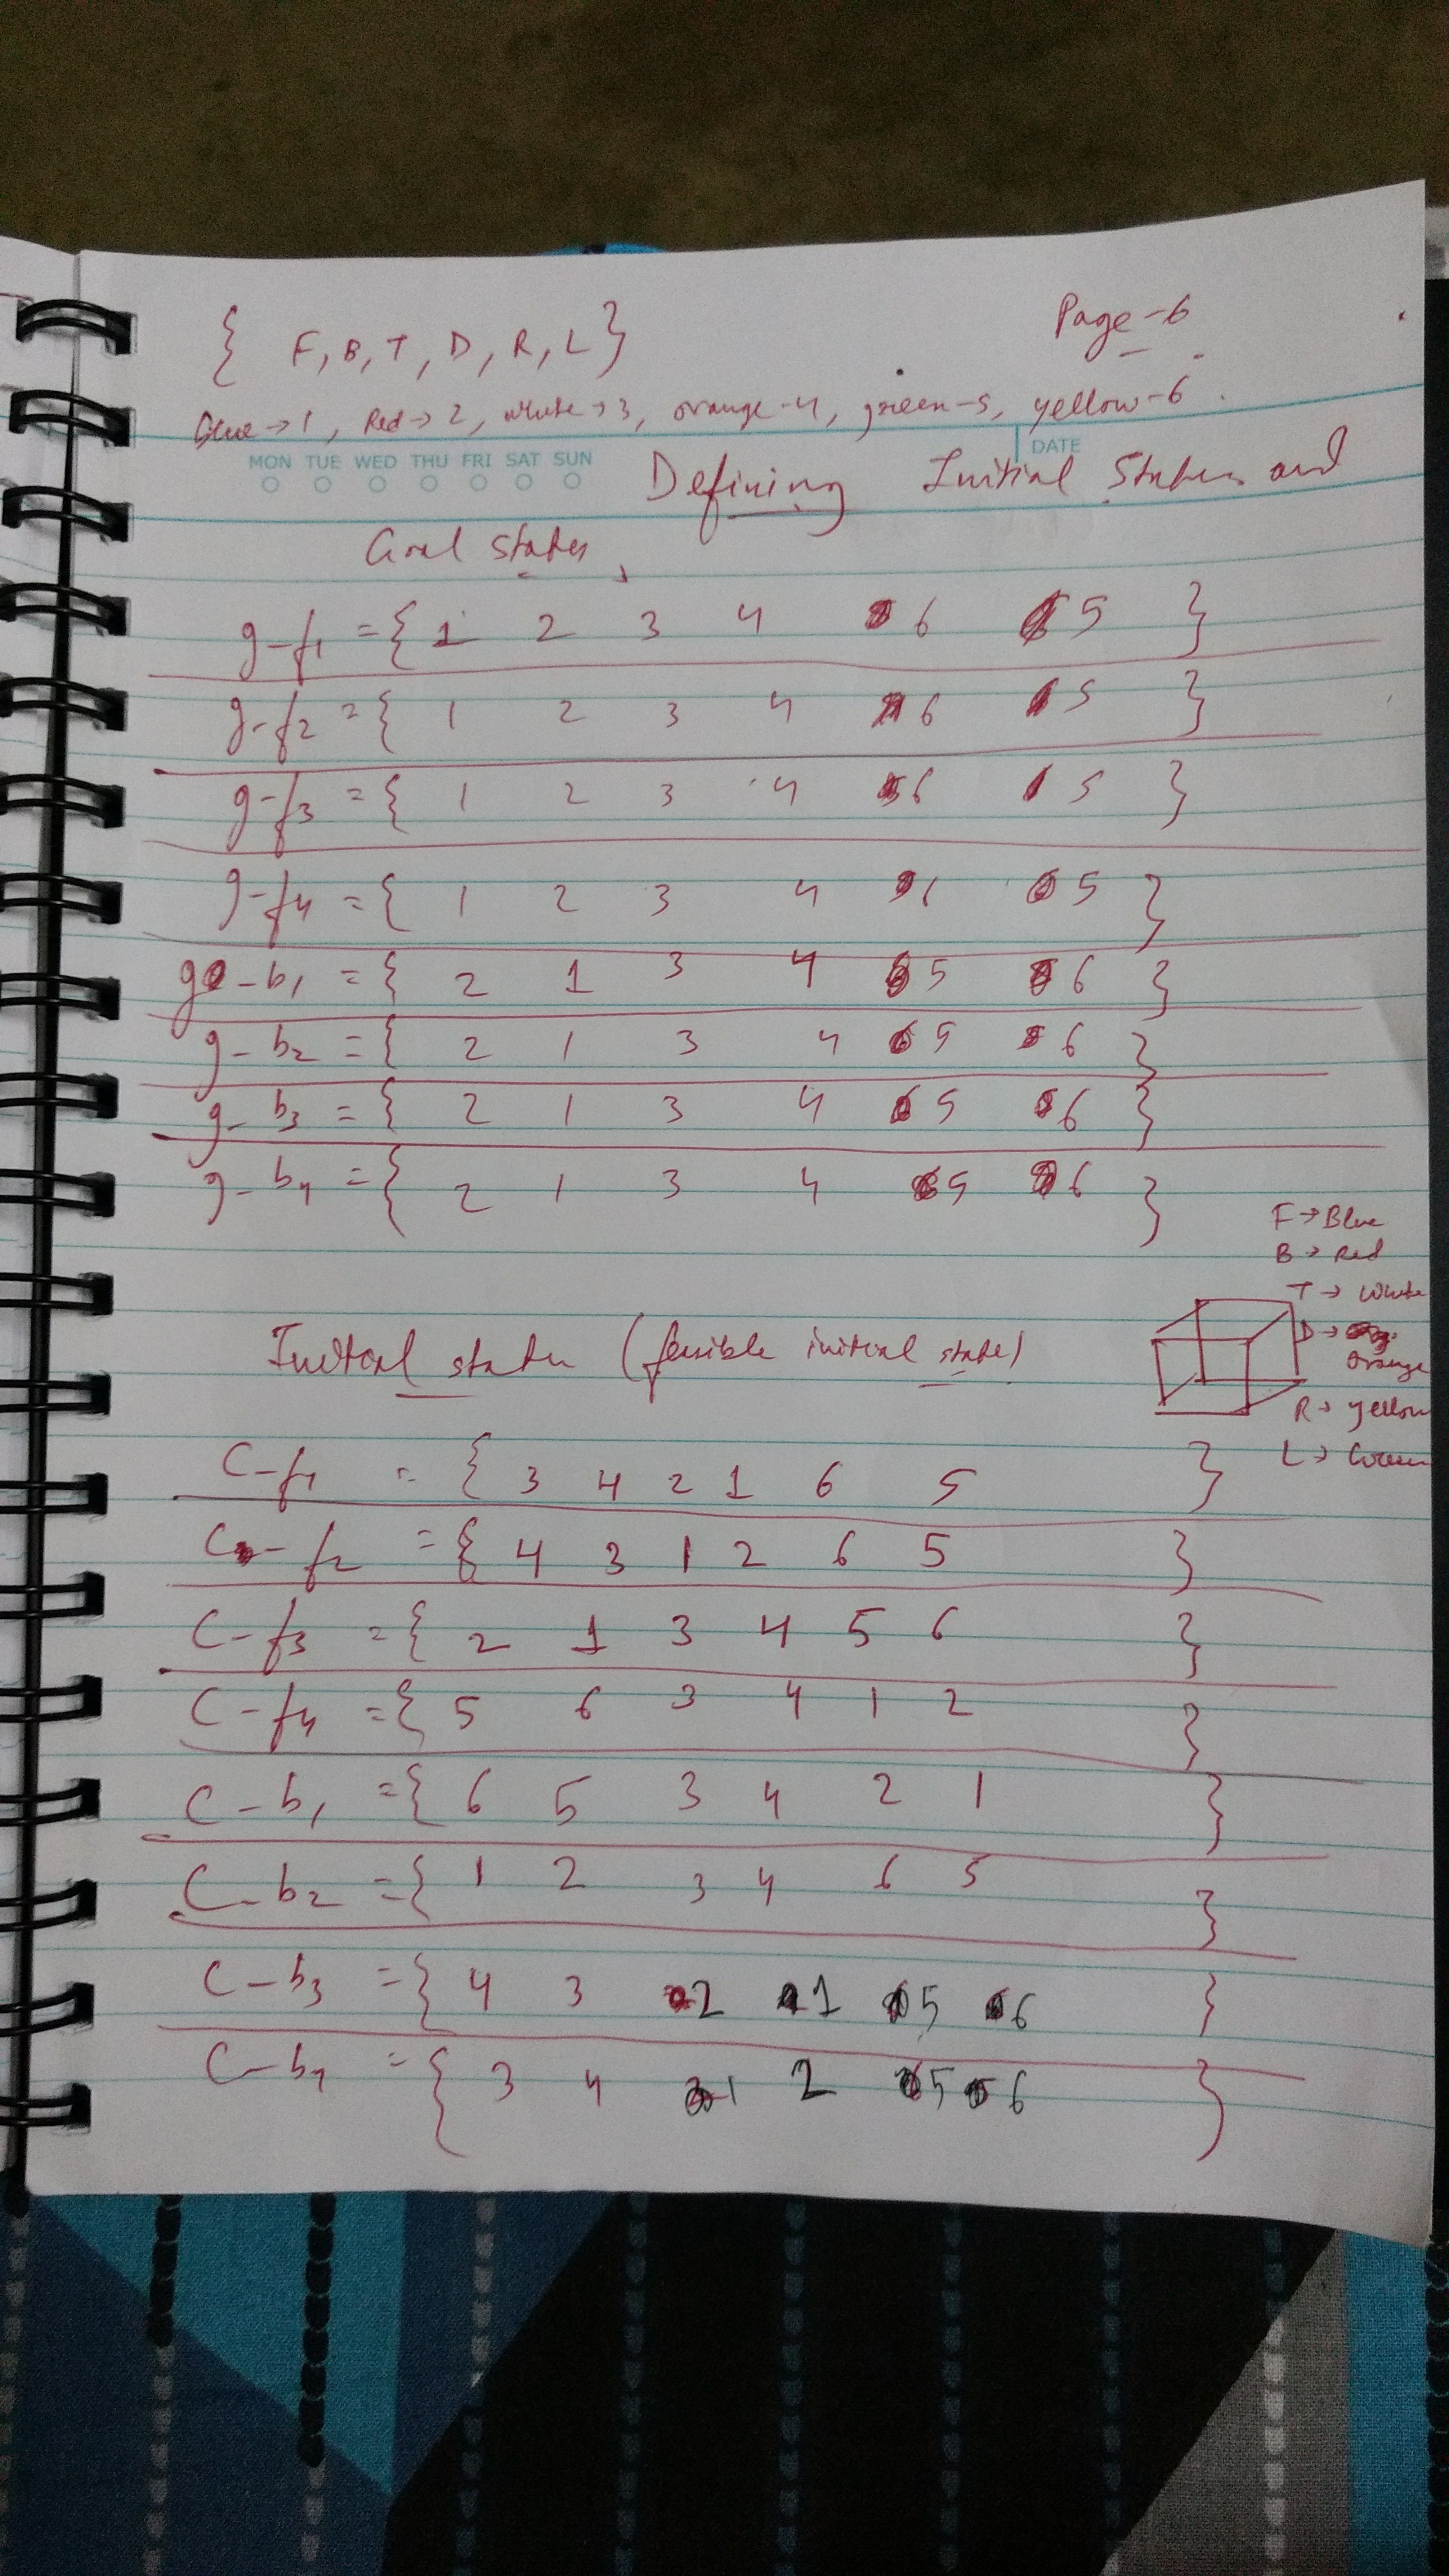 Page-6
{ F, B, T, D, R, L }
Blue→1, Red→2, white→3, orange-4, green-5, yellow-6.
MON TUE WED THU FRI SAT SUN
DATE
Defining Initial States and
Goal states,
g-f1 = { 1 2 3 4 6 5 }
g-f2 = { 1 2 3 4 6 5 }
g-f3 = { 1 2 3 4 6 5 }
g-f4 = { 1 2 3 4 6 5 }
g-b1 = { 2 1 3 4 5 6 }
g-b2 = { 2 1 3 4 5 6 }
g-b3 = { 2 1 3 4 5 6 }
g-b4 = { 2 1 3 4 5 6 }
F→Blue
B→Red
T→white
D→
orange
R→yellow
L→Green
Initial state (feasible initial state)
C-f1 = { 3 4 2 1 6 5 }
C-f2 = { 4 3 1 2 6 5 }
C-f3 = { 2 1 3 4 5 6 }
C-f4 = { 5 6 3 4 1 2 }
C-b1 = { 6 5 3 4 2 1 }
C-b2 = { 1 2 3 4 6 5 }
C-b3 = { 4 3 2 1 5 6 }
C-b4 = { 3 4 1 2 5 6 }